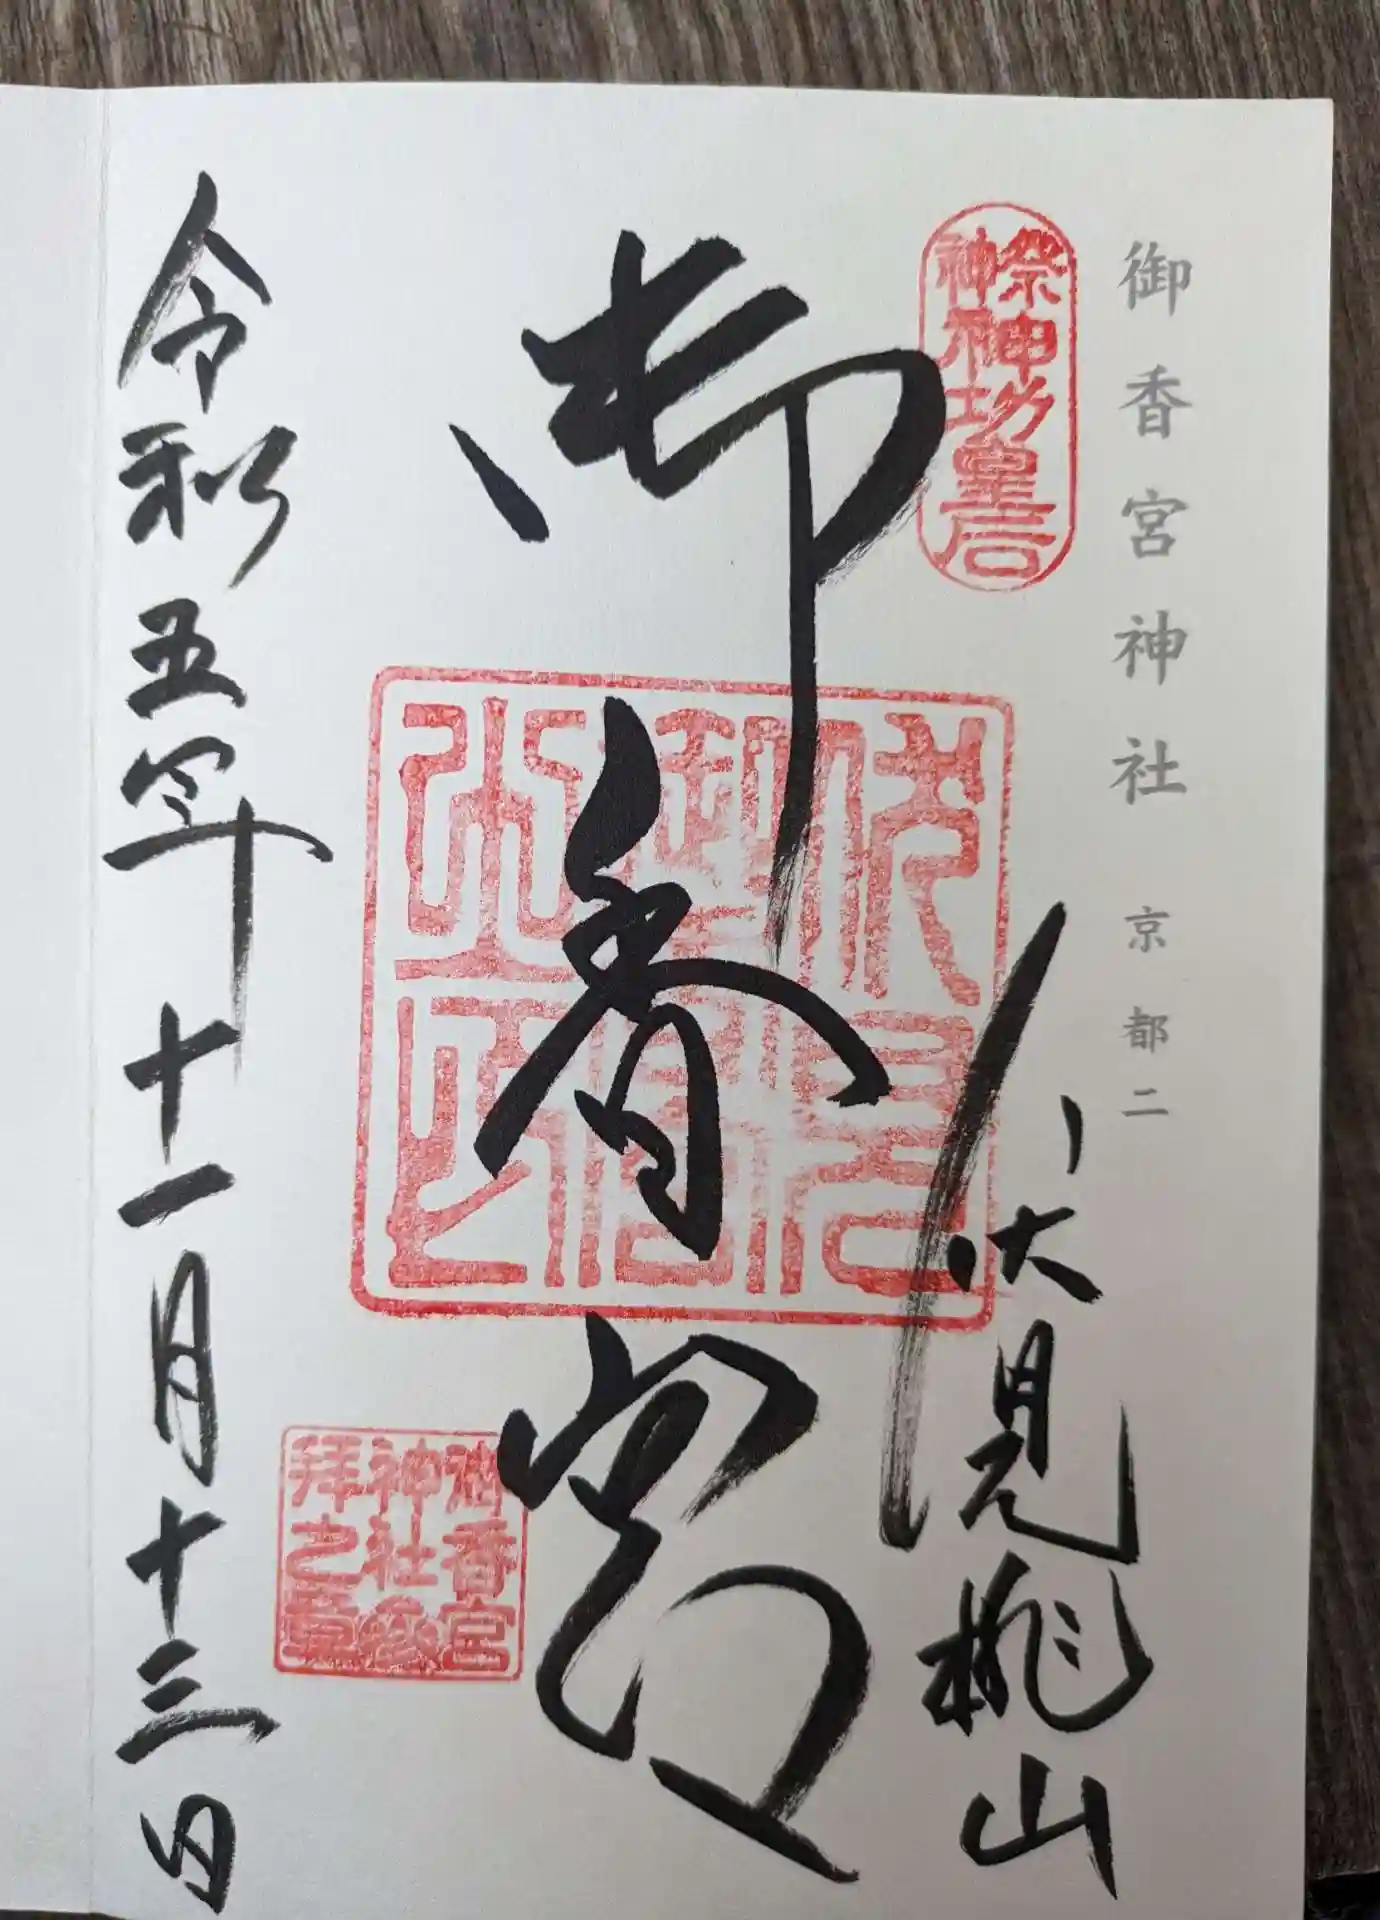 御香宮神社 京都二
伏見桃山
祭神
神功皇后
御香宮
御香宮
神社参
拝之章
令和五年十一月十三日